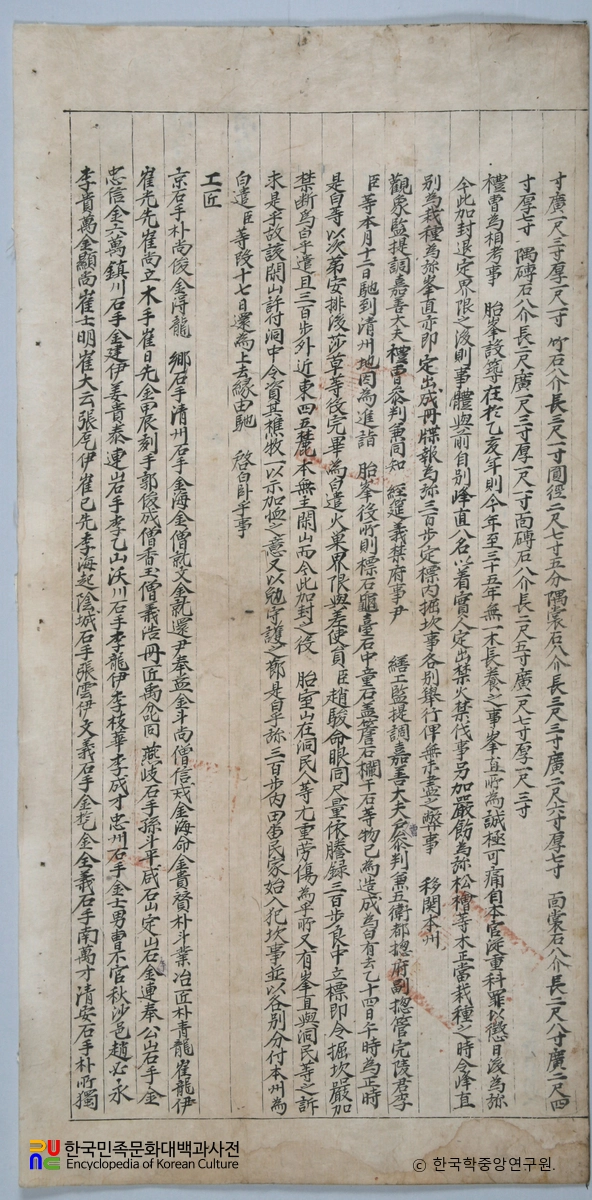 寸廣一尺三寸厚一尺一寸 竹石八介長三尺一寸圓徑二尺七寸五分隅裳石八介長三尺三寸廣二尺六寸厚七寸 面裳石八介長二尺八寸廣二尺四
寸厚七寸 隅磚石八介長二尺廣一尺三寸厚一尺一寸面磚石八介長二尺五寸廣一尺七寸厚一尺三寸
禮曹爲相考事 胎峯設築在於乙亥年則今年至三十五年無一木長養之事峯直所爲誠極可痛自本官從重科罪以懲日後爲旀
今此加封退定界限之後則事體與前自別峰直八名以着實人定出禁火禁伐事另加嚴飭爲旀松檜等木正當栽種之時令峰直
別爲栽種爲旀峯直亦卽定出成冊牒報爲旀三百步定標內掘坎事各別擧行俾無未盡之弊事 移關本州
觀象監提調嘉善大夫禮曹參判兼同知 經筵義禁府事尹 繕工監提調嘉善大夫 參判兼五衛都摠府副摠管完陵君李
臣等本月十二日馳到淸州地因爲進詣 胎峯役所則標石龜臺石中童石蓋簷石欄干石等物已爲造成爲白有去乙十四日午時爲正時
是白等以次第安排後莎草等役完畢爲白遣火巢界限與差使員臣趙駿命眼同尺量依謄錄三百步良中立標卽令掘坎嚴加
禁斷爲白乎遣且三百步外近東四五麓本無主閑山而今此加封之役 胎室山在洞民人等尤重勞傷爲乎所又有峯直與洞民等之訴
求是乎故該閑山許付洞中令資其樵牧一以示加恤之意又以勉守護之節是白乎旀三百步內田畓民家始入犯坎事並以各別分付本州爲
白遣臣等段十七日還爲上去緣由馳 啓白臥乎事
工匠
京石手朴尙俊金淂龍 鄕石手淸州石手金海金僧就文金就還尹奉益金斗尙僧信戒金海命金貴賛朴斗業冶匠朴靑龍崔龍伊
崔先先崔尙立木手崔日先金甲辰刻手郭俊成僧香玉僧義浩冊匠禹忿同 燕岐石手孫斗平咸石山定山石金連奉公山石手金
忠信金六萬鎭川石手金建伊姜貴泰連山石手李乙山沃川石手李龍伊李枝華李成才忠州石手金士男曺不官秋沙邑趙必永
李貴萬金顯尙崔士明崔大云張乭伊崔已先李海起陰城石手張雲伊文義石手金 金全義石手南萬才淸安石手朴所獨
한국민족문화대백과사전
Encyclopedia of Korean Culture
© 한국학중앙연구원.